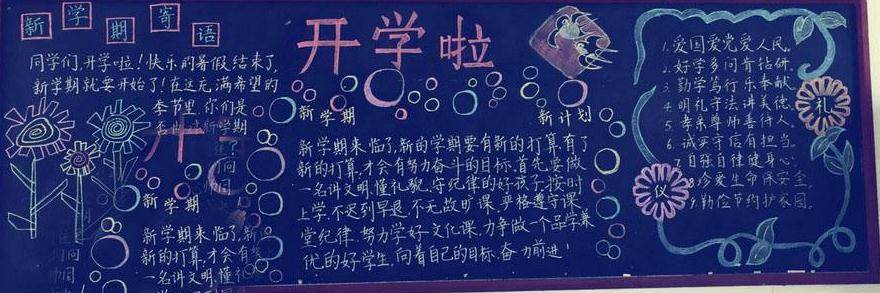 新学期寄语
同学们,开学啦!快乐的暑假结束了,
新学期就要开始了!在这充满希望的
季节里,你们是
新学期
开
新学期
新学期来临了,新
新的打算,才会有努
一名讲文明,懂礼
开学啦
新学期
新计划
新学期来临了,新的学期要有新的打算,有了
新的打算,才会有努力奋斗的目标,首先,要做
一名讲文明,懂礼貌,守纪律的好孩子,按时
上学,不迟到早退,不无故旷课,严格遵守课
堂纪律,努力学好文化课,力争做一个品学兼
优的好学生,向着自己的目标,奋力前进!
1.爱国爱党爱人民。
2.好学多问肯钻研。
3.勤学笃行乐奉献
4.明礼守法讲美德
5.孝亲尊师善待人。
6.诚实守信有担当。
7.自强自律健身心。
8.珍爱生命保安全。
9.勤俭节约护家园。
礼
仪